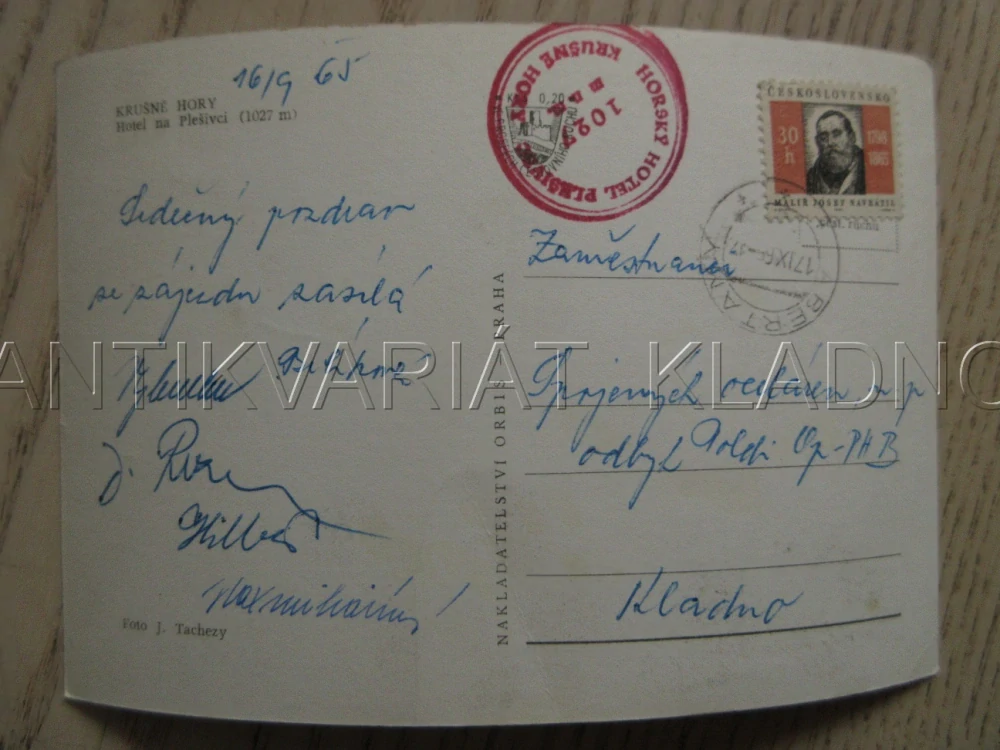 16/9 65
KRUŠNÉ HORY
Hotel na Plešivci (1027 m)
Srdečný pozdrav
ze zájezdu zasílá
J.
Maxmilianí
Foto J. Tachezy
NAKLADATELSTVÍ ORBIS PRAHA
HORSKÝ HOTEL PLEŠIVEC KRUŠNÉ HORY
1027 m
Kčs 0,20
ČESKOSLOVENSKO
30 h
1798
1865
MALÍŘ JOSEF NAVRÁTIL
ABERTAMY
17.IX.65-17
Zaměstnanci
Spojených oceláren n p
odbyt Poldi Op-PHB
Kladno
ANTIKVARIÁT KLADNO